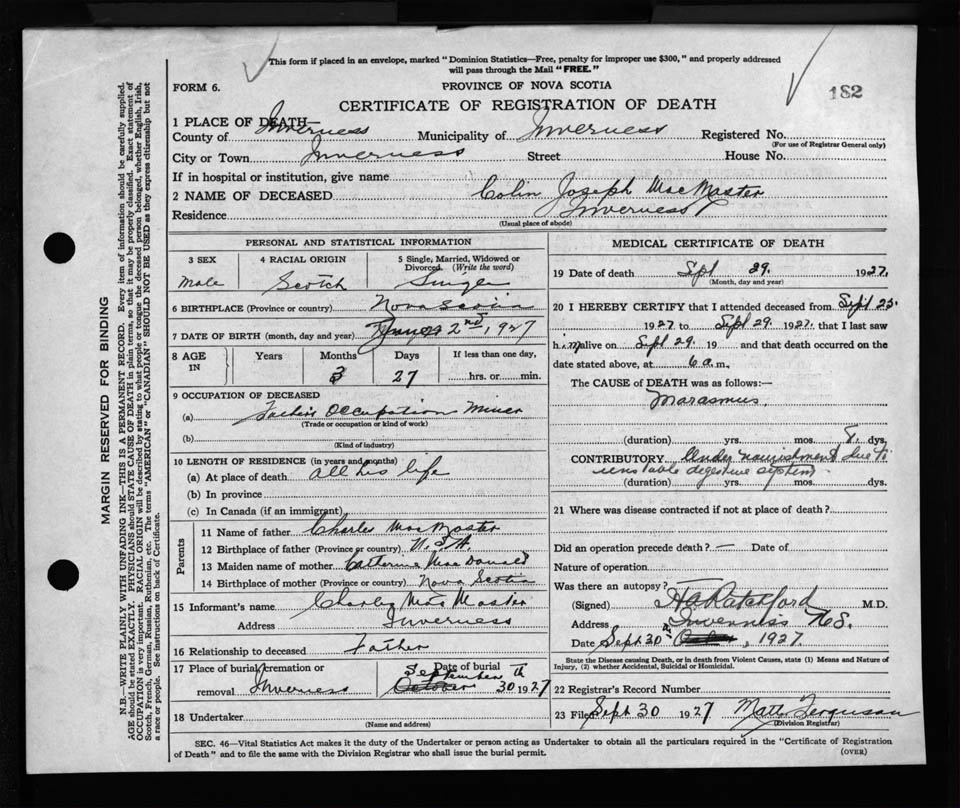 This form if placed in an envelope, marked "Dominion Statistics—Free, penalty for improper use $300," and properly addressed
will pass through the Mail "FREE."
FORM 6.
PROVINCE OF NOVA SCOTIA
182
CERTIFICATE OF REGISTRATION OF DEATH
1 PLACE OF DEATH
County of Inverness Municipality of Inverness Registered No.
(For use of Registrar General only)
City or Town Inverness Street House No.
If in hospital or institution, give name
2 NAME OF DECEASED Colin Joseph MacMaster
Residence Inverness
(Usual place of abode)
PERSONAL AND STATISTICAL INFORMATION
3 SEX 4 RACIAL ORIGIN 5 Single, Married, Widowed or
Divorced (Write the word)
Male Scotch Single
6 BIRTHPLACE (Province or country) Nova Scotia
7 DATE OF BIRTH (month, day and year) 2nd, 1927
8 AGE IN Years Months Days If less than one day,
3 27 hrs. or min.
9 OCCUPATION OF DECEASED
(a) Father's Occupation Miner
(Trade or occupation or kind of work)
(b)
(Kind of industry)
10 LENGTH OF RESIDENCE (in years and months)
(a) At place of death all his life
(b) In province
(c) In Canada (if an immigrant)
Parents
11 Name of father Charles MacMaster
12 Birthplace of father (Province or country) U.S.A.
13 Maiden name of mother Catherine MacDonald
14 Birthplace of mother (Province or country) Nova Scotia
15 Informant's name Charles MacMaster
Address Inverness
16 Relationship to deceased Father
17 Place of burial, cremation or Date of burial
removal Inverness September October 30th 1927
18 Undertaker
(Name and address)
MEDICAL CERTIFICATE OF DEATH
19 Date of death Spt 29. 1927.
(Month, day and year)
20 I HEREBY CERTIFY that I attended deceased from Sept 23.
1927 to Sept 29. 1927, that I last saw
him alive on Sept 29. 19 and that death occurred on the
date stated above, at 6 a.m.
The CAUSE of DEATH was as follows:—
Marasmus.
(duration) yrs. mos. 8. dys.
CONTRIBUTORY Under nourishment due to
unstable digestive system
(duration) yrs. mos. dys.
21 Where was disease contracted if not at place of death?
Did an operation precede death? — Date of
Nature of operation
Was there an autopsy? —
(Signed) Ratchford M.D.
Address Inverness N.S.
Date Sept 30, 1927.
State the Disease causing Death, or in death from Violent Causes, state (1) Means and Nature of
Injury, (2) whether Accidental, Suicidal or Homicidal.
22 Registrar's Record Number
23 Filed Sept 30 1927 Matt Ferguson
(Division Registrar)
SEC. 46—Vital Statistics Act makes it the duty of the Undertaker or person acting as Undertaker to obtain all the particulars required in the "Certificate of Registration
of Death" and to file the same with the Division Registrar who shall issue the burial permit.
(OVER)
MARGIN RESERVED FOR BINDING
N.B.—WRITE PLAINLY WITH UNFADING INK—THIS IS A PERMANENT RECORD. Every item of information should be carefully supplied.
AGE should be stated EXACTLY. PHYSICIANS should STATE CAUSE OF DEATH in plain terms, so that it may be properly classified. Exact statement of
OCCUPATION is very important. RACIAL ORIGIN will be described by stating to what people or tongue the deceased person belonged, whether English, Irish,
Scotch, French, German, Russian, Ruthenian, etc. The terms "AMERICAN" or "CANADIAN" SHOULD NOT BE USED as they express citizenship but not
a race or people. See instructions on back of Certificate.